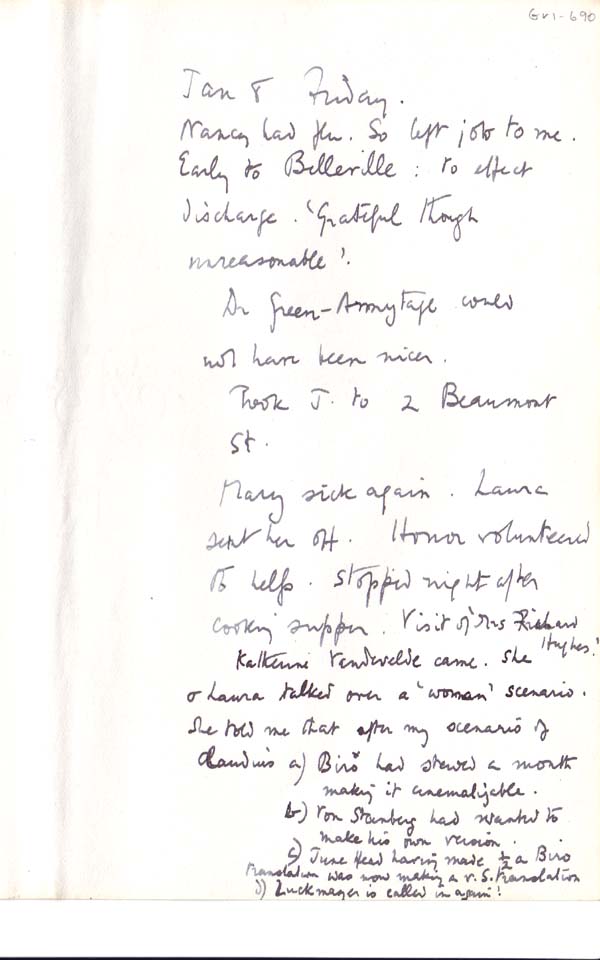 GV1-690
Jan 8 Friday.
Nancy had flu. So left job to me.
Early to Belleville : to effect
discharge. 'Grateful though
unreasonable'.
Dr Green-Armytage could
not have been nicer.
Took J. to 2 Beaumont
St.
Mary sick again. Laura
sent her off. Honor volunteered
to help. Stopped night after
cooking supper. Visit of 'Mrs Richard
Hughes.'
Katherine Vandervelde came. She
& Laura talked over a 'woman' scenario.
She told me that after my scenario of
Claudius a) Biro had stewed a month
making it cinematizable.
b) Von Sternberg had wanted to
make his own version.
c) June Head having made ½ a Biro
translation was now making a v. S. translation
d) Luckmayer is called in again!